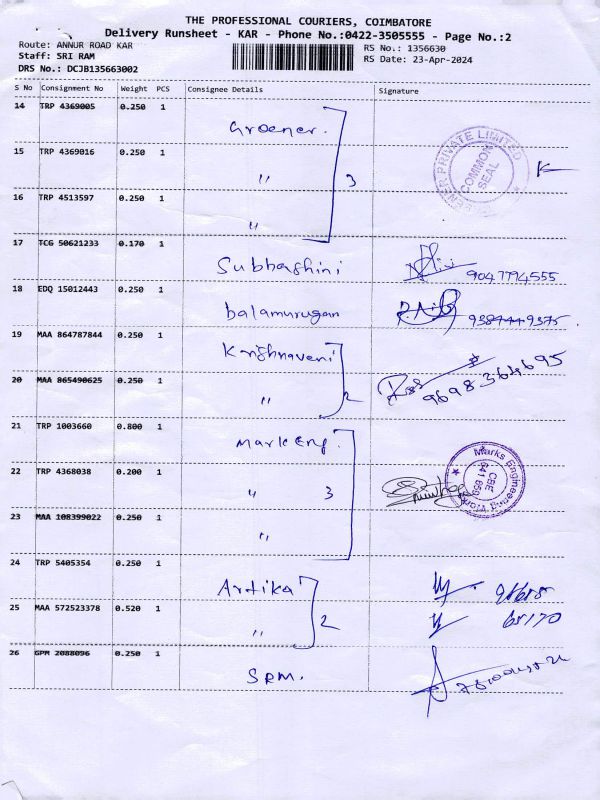 THE PROFESSIONAL COURIERS, COIMBATORE
Delivery Runsheet - KAR - Phone No.:0422-3505555 - Page No.:2
Route: ANNUR ROAD KAR
RS No.: 1356630
Staff: SRI RAM
RS Date: 23-Apr-2024
DRS No.: DCJB135663002
S No Consignment No Weight PCS Consignee Details Signature
14 TRP 4369005 0.250 1
Groener.
15 TRP 4369016 0.250 1
" 3
PRIVATE LIMITED
COMMON SEAL
16 TRP 4513597 0.250 1
"
17 TCG 50621233 0.170 1
Subhashini 9047794555
18 EDQ 15012443 0.250 1
balamurugan
19 MAA 864787844 0.250 1
Krishnaveni
20 MAA 865490625 0.250 1
" 2 9698364695
21 TRP 1003660 0.800 1
Mark Eng.
Marks Engineering Works
CBE
641 659
22 TRP 4368038 0.200 1
" 3
23 MAA 108399022 0.250 1
"
24 TRP 5405354 0.250 1
Artika
25 MAA 572523378 0.520 1
" 2 65170
26 GPM 2088096 0.250 1
SRM.